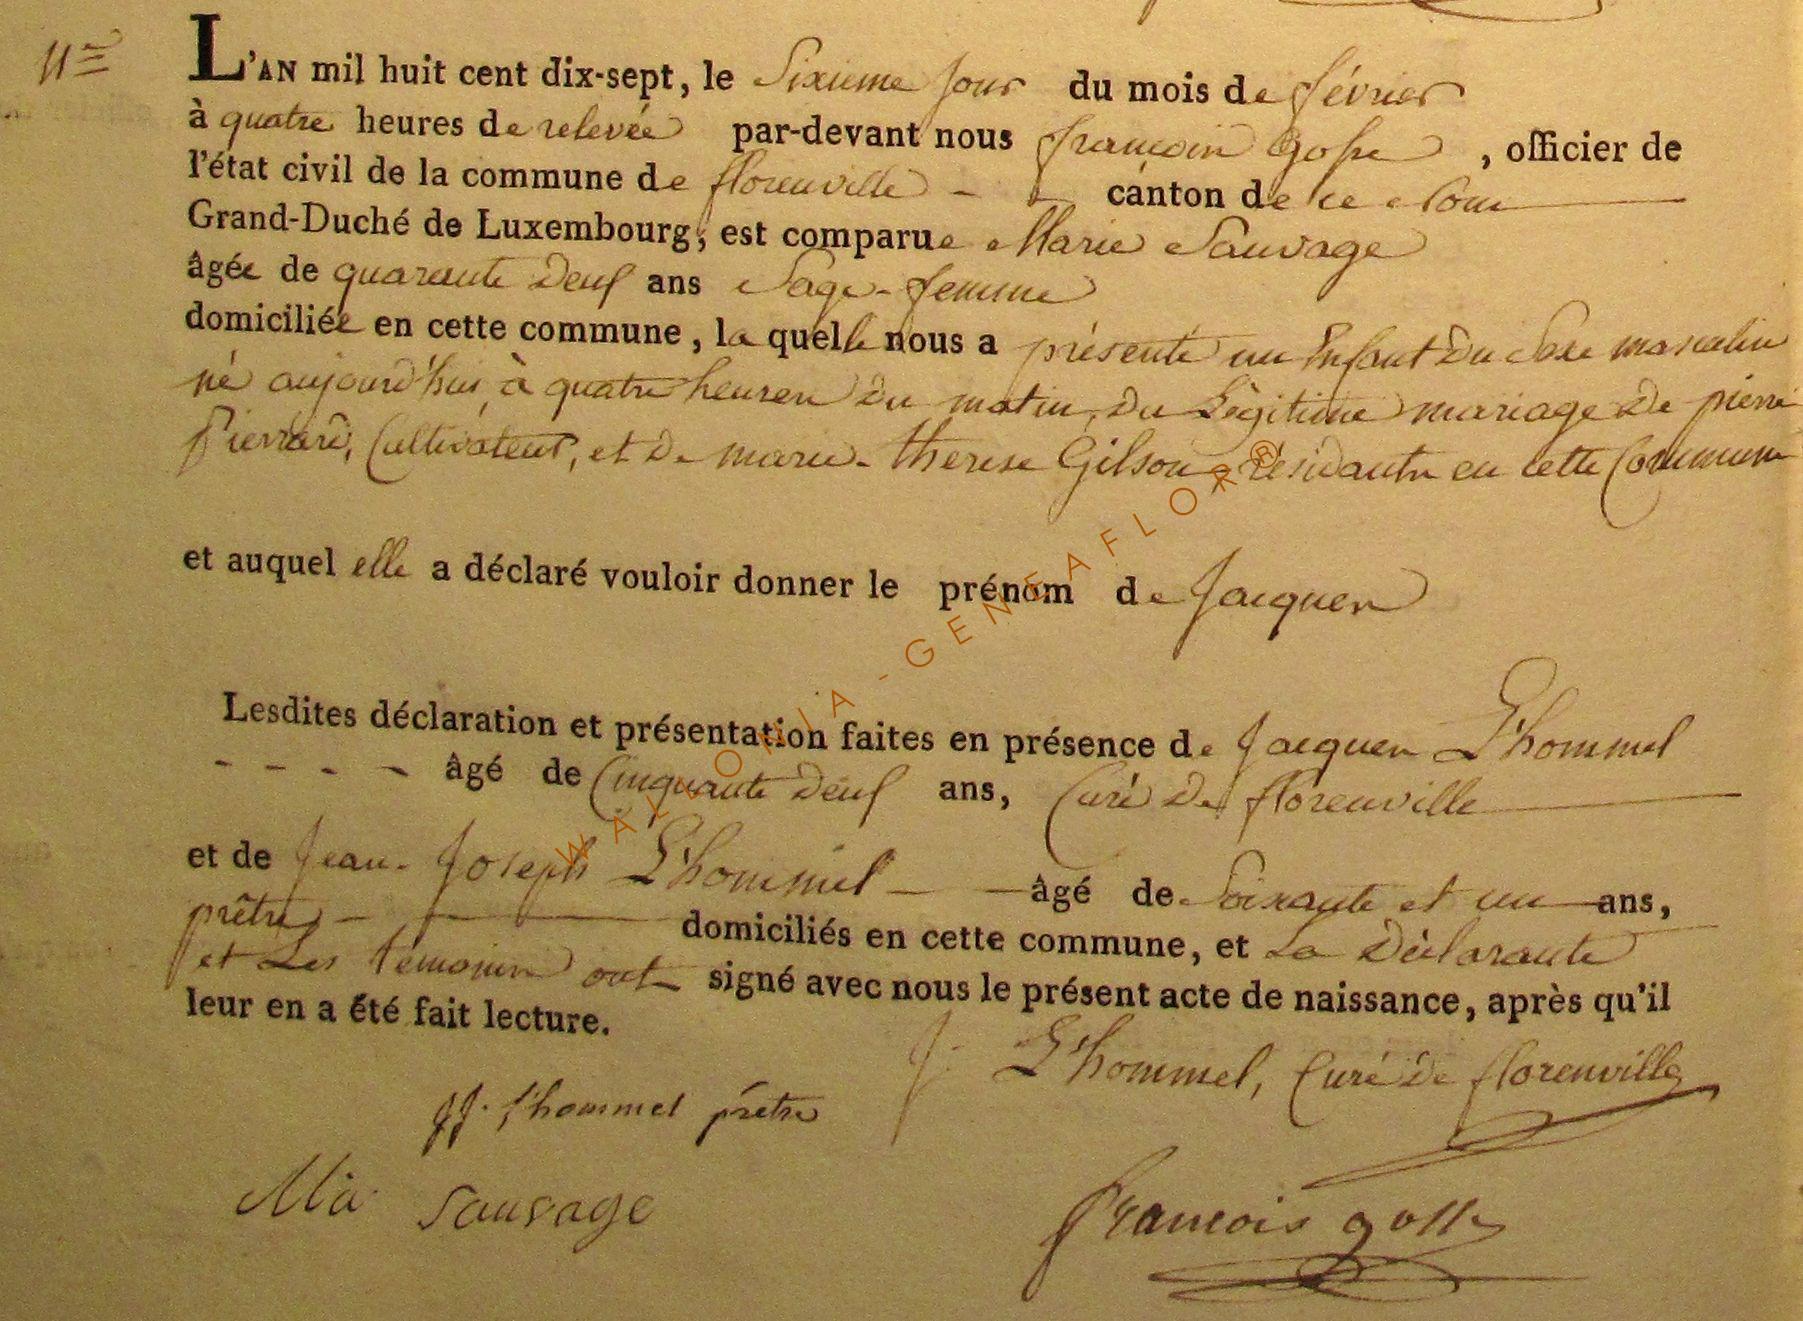 11e
L'AN mil huit cent dix-sept, le Sixieme jour du mois de février
à quatre heures de relevée par-devant nous françois Gosse, officier de
l'état civil de la commune de florenville - canton de ce nom
Grand-Duché de Luxembourg, est comparue Marie Sauvage
âgée de quarante deux ans Sage-femme
domiciliée en cette commune, la quelle nous a présenté un Enfant du Sexe masculin
né aujourd'hui, à quatre heures du matin, du Légitime mariage de pierre
Pierrard, Cultivateur, et de marie-therese Gilson residants en cette Commune
et auquel elle a déclaré vouloir donner le prénom de Jacques
Lesdites déclaration et présentation faites en présence de Jacques L'hommel
- - - - âgé de Cinquante deux ans, Curé de florenville
et de Jean-Joseph L'hommel - - âgé de Soixante et un ans,
prêtre - - domiciliés en cette commune, et La Déclarante
et Les témoins ont signé avec nous le présent acte de naissance, après qu'il
leur en a été fait lecture.
J. L'hommel, Curé de florenville
jj. l'hommel prêtre
Mie Sauvage
françois gosse
WALLONIA - GENEAFLOR®